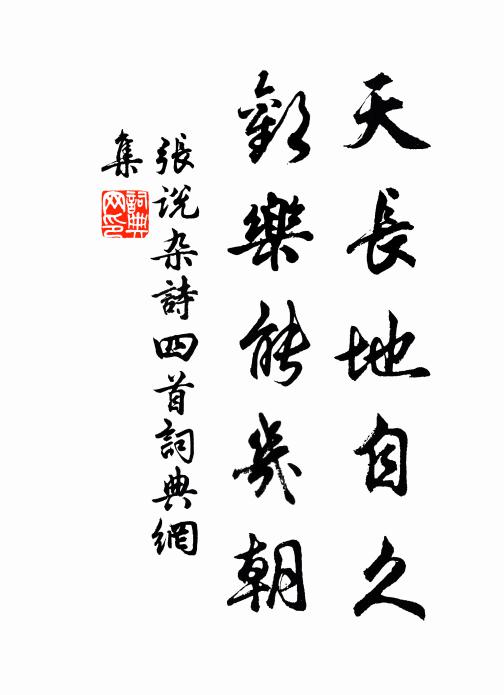 天長地自久
歡樂能幾朝
張説杂詩四首詞典網
集
詞典
网印